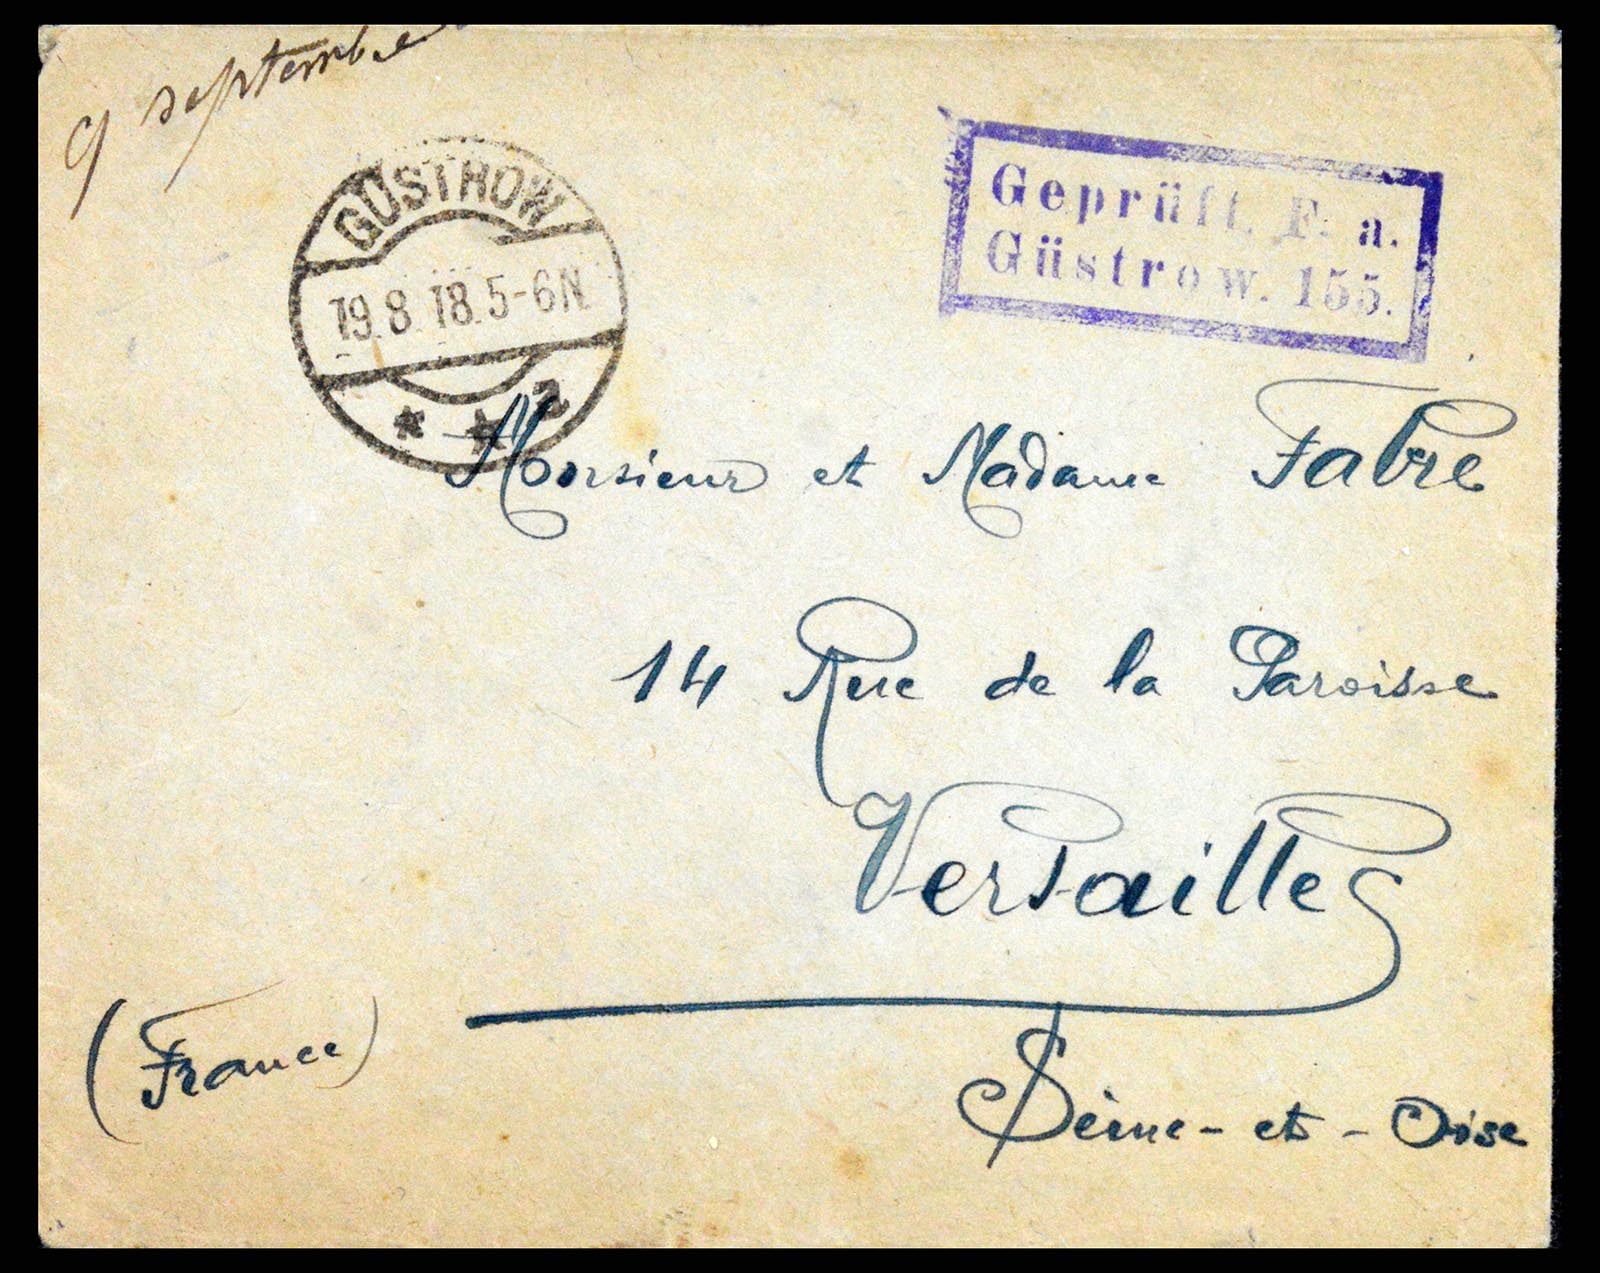 9 septembre
GÜSTROW
19.8.18.5-6N.
* * a
Geprüft. F. a.
Güstrow. 155.
Monsieur et Madame Fabre
14 Rue de la Paroisse
Versailles
(France)
Seine-et-Oise